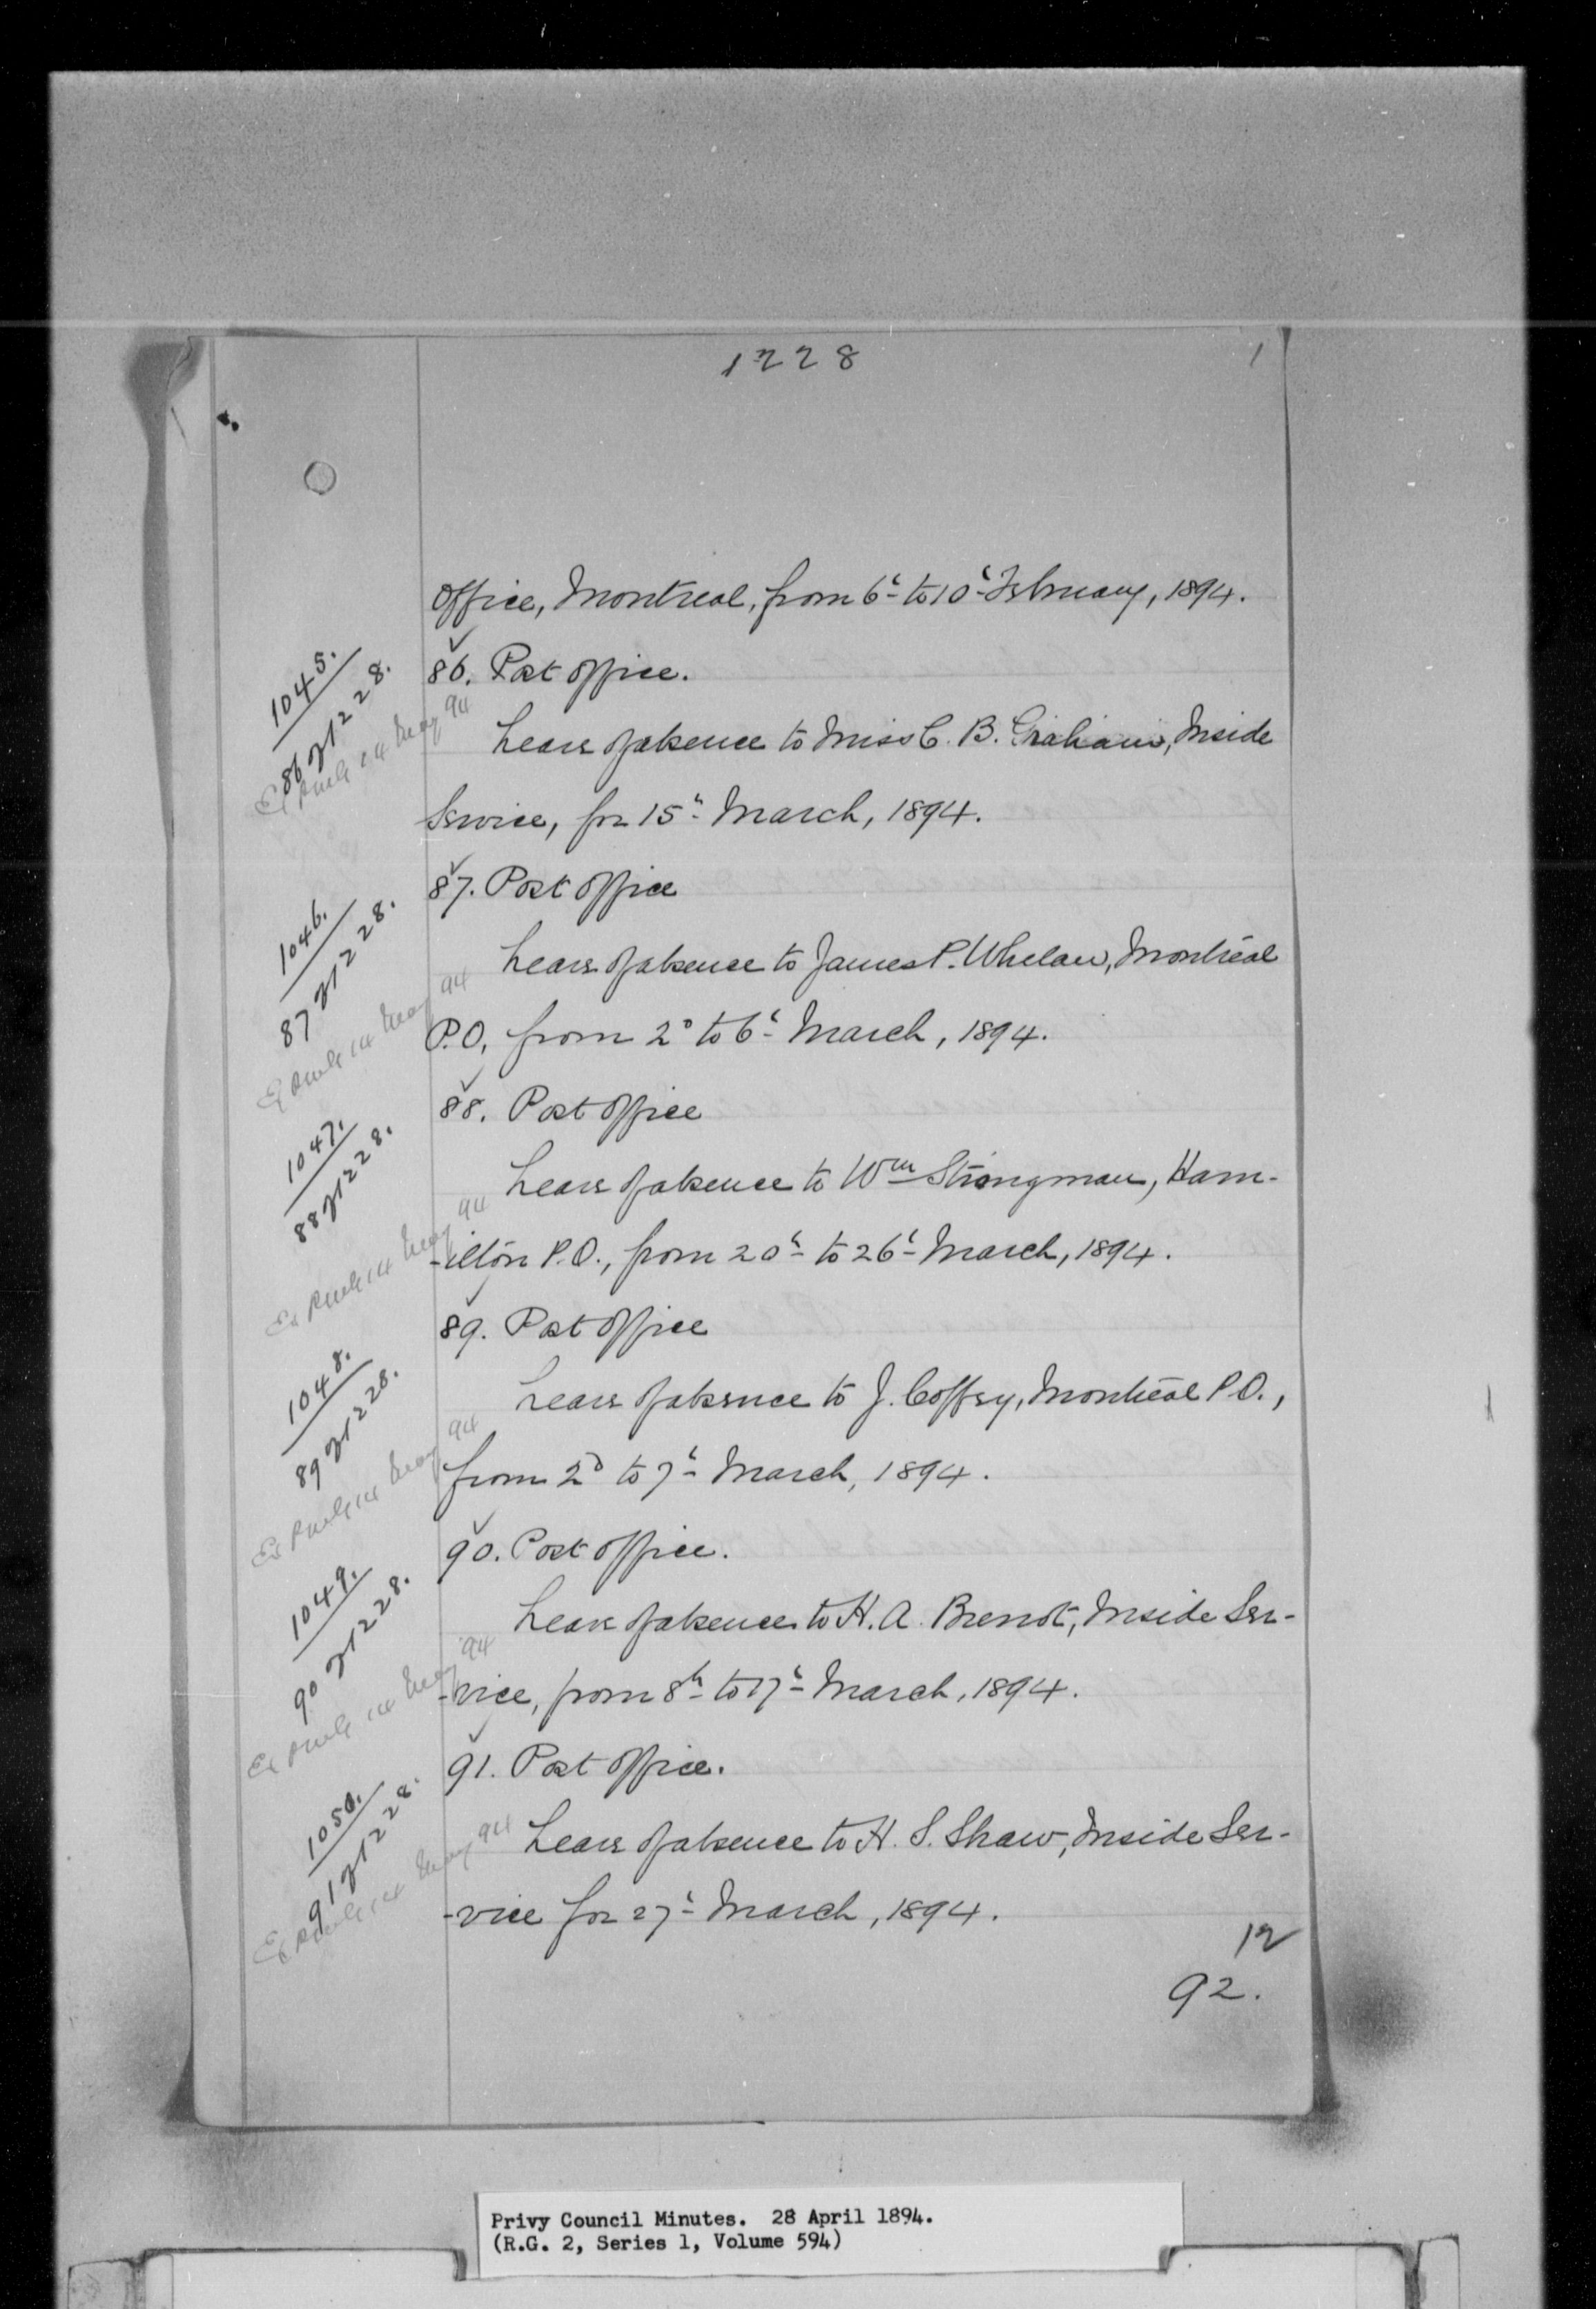 1228
office, Montreal, from 6th to 10th February, 1894.
1045.
86 of 1228.
86. Post office.
Leave of absence to Miss C. B. Graham, Inside
Service, for 15th March, 1894.
1046.
87 of 1228.
87. Post office
Leave of absence to James P. Whelan, Montreal
P.O, from 2d to 6th March, 1894.
1047.
88 of 1228.
88. Post office
Leave of absence to Wm Strongman, Ham-
-ilton P.O., from 20th to 26th March, 1894.
1048.
89 of 1228.
89. Post office
Leave of absence to J. Coffey, Montreal P.O.,
from 2d to 7th March, 1894.
1049.
90 of 1228.
90. Post office.
Leave of absence to H. A. , Inside Ser-
-vice, from 8th to 17th March, 1894.
1050.
91 of 1228.
91. Post office.
Leave of absence to H. S. Shaw, Inside Ser-
-vice for 27th March, 1894.
12
92.
Privy Council Minutes. 28 April 1894.
(R.G. 2, Series 1, Volume 594)